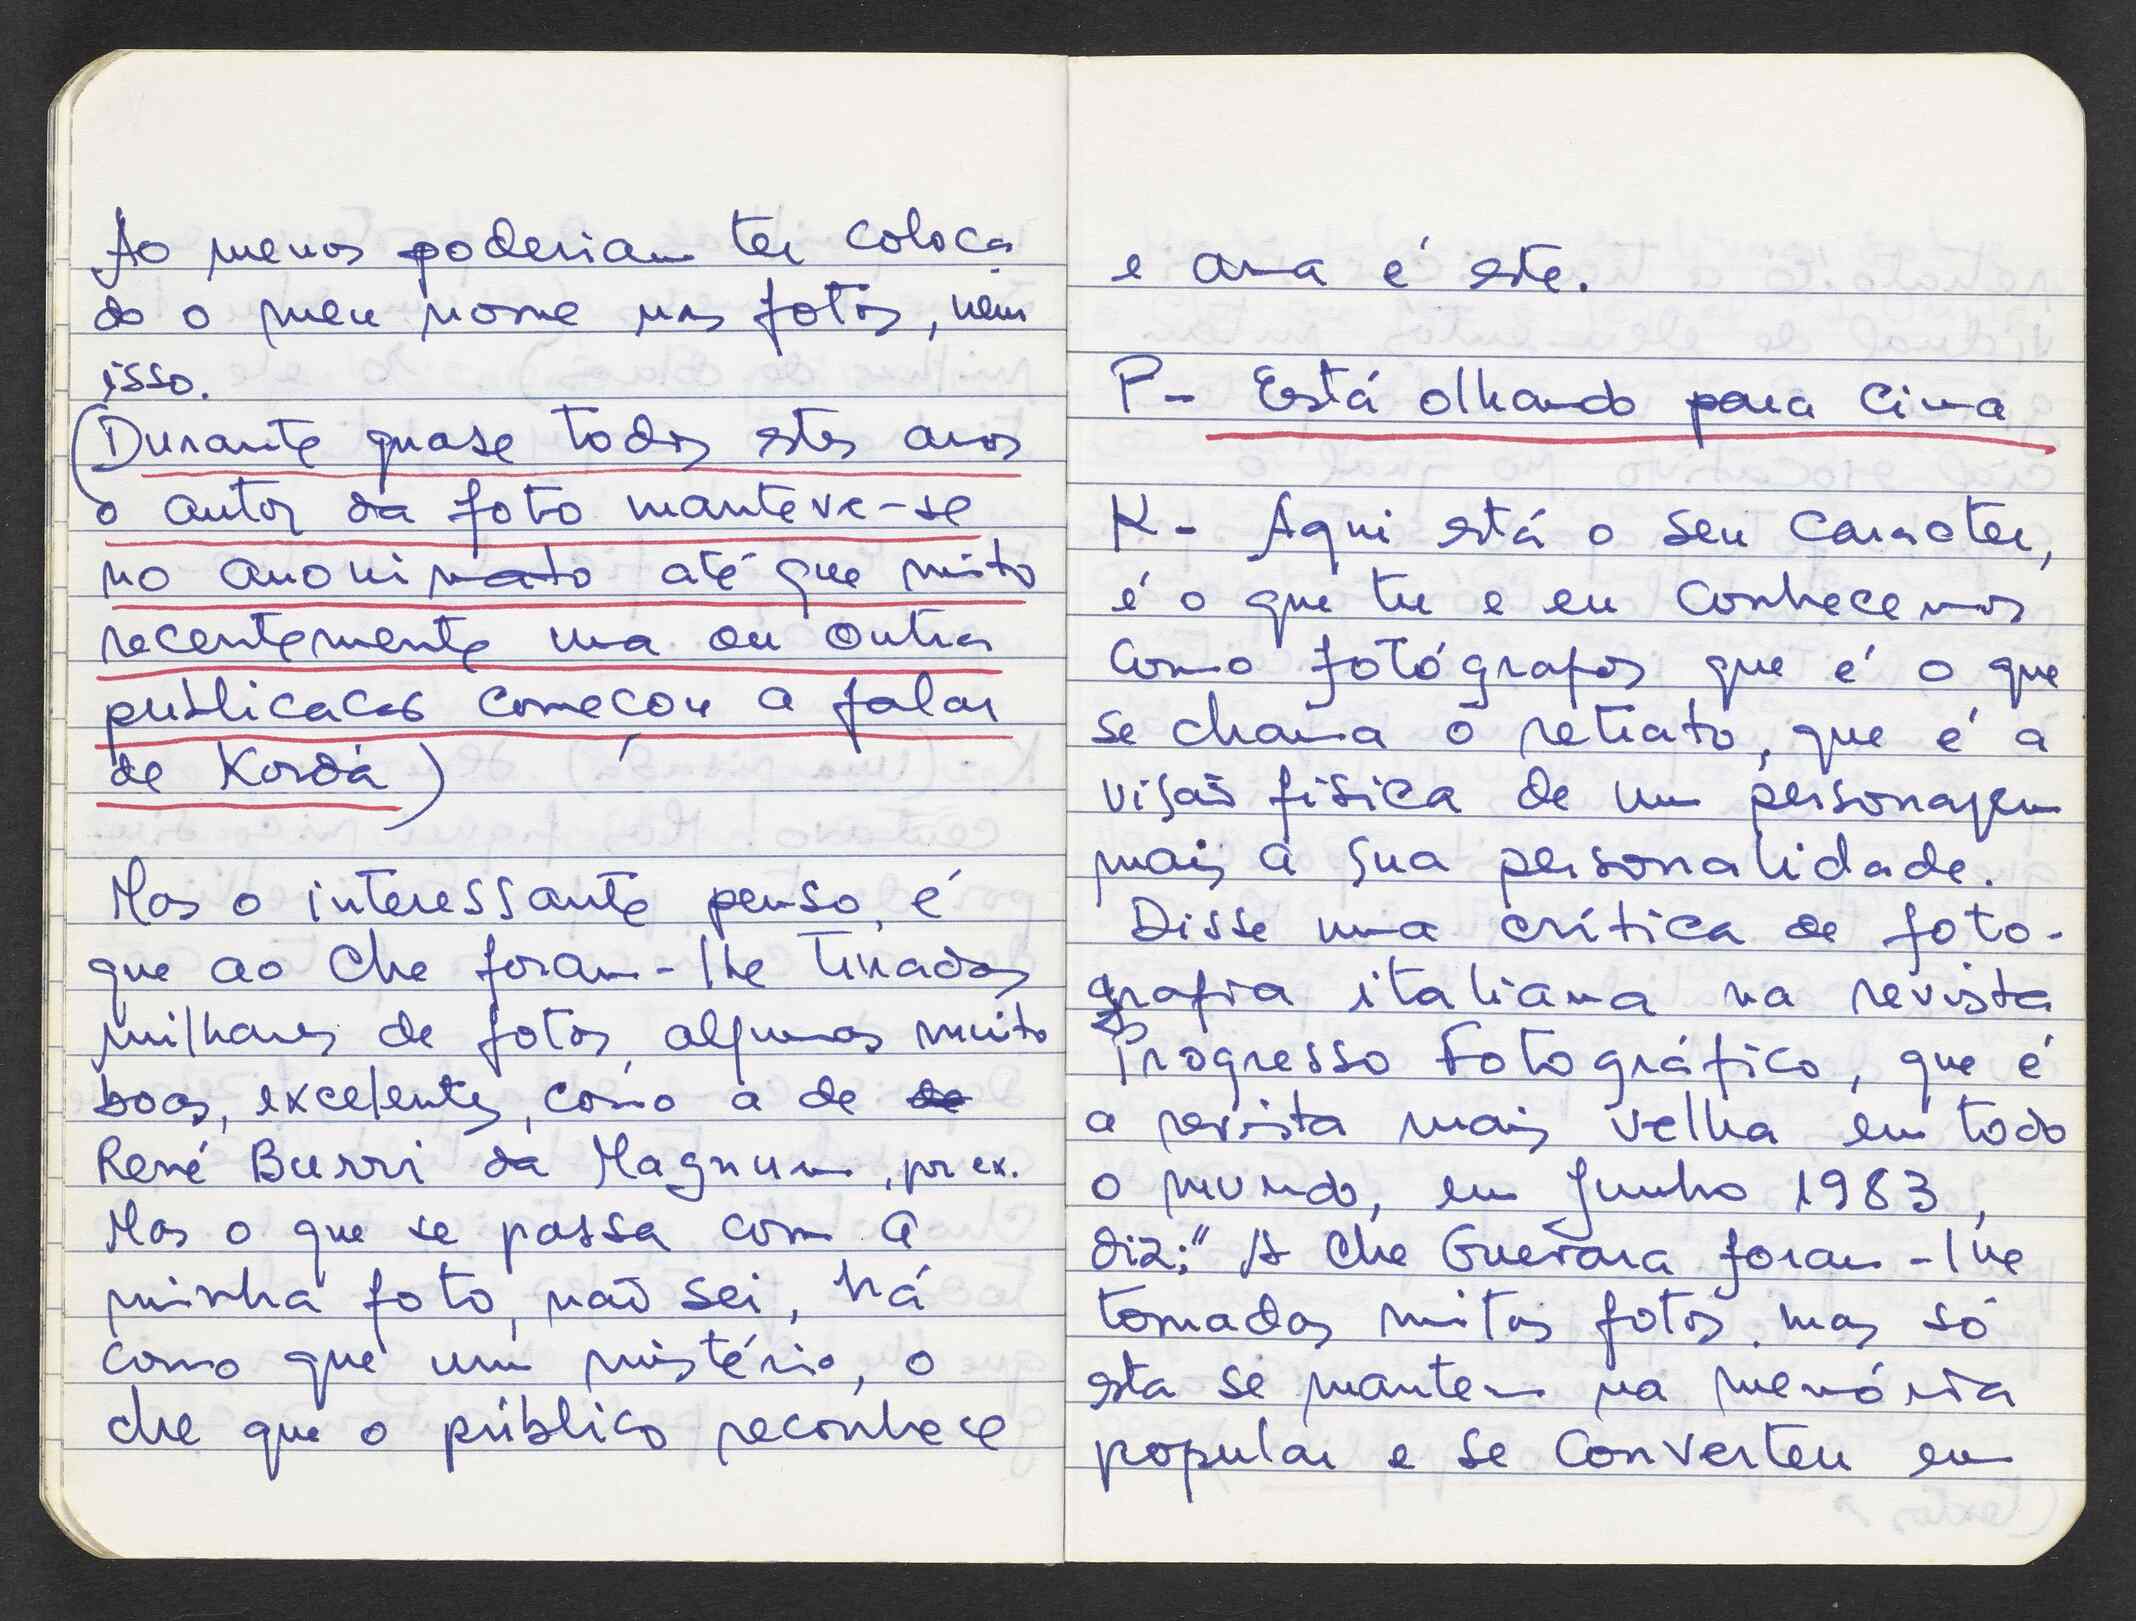 Ao menos poderiam ter coloca
do o meu nome nas fotos, nem
isso.
(Durante quase todos estes anos
o autor da foto manteve-se
no anonimato até que muito
recentemente uma ou outra
publicacas começou a falar
de Korda)
Mas o interessante penso, é
que ao Che foram-lhe tiradas
milhares de fotos, algumas muito
boas, excelentes, como a de de
René Burri da Magnum, por ex.
Mas o que se passa com a
minha foto, não sei, há
como que um mistério, o
che que o público reconhece
e ama é este.
P- Está olhando para cima
K- Aqui está o seu caracter,
é o que tu e eu conhecemos
como fotógrafos que é o que
se chama o retrato, que é a
visão física de um personagem
mais a sua personalidade.
Disse uma crítica de foto-
grafia italiana na revista
Progresso Fotográfico, que é
a revista mais velha em todo
o mundo, em Junho 1983,
diz: "A Che Guevara foram-lhe
tomadas muitas fotos, mas só
esta se mantem na memória
popular e se converteu em